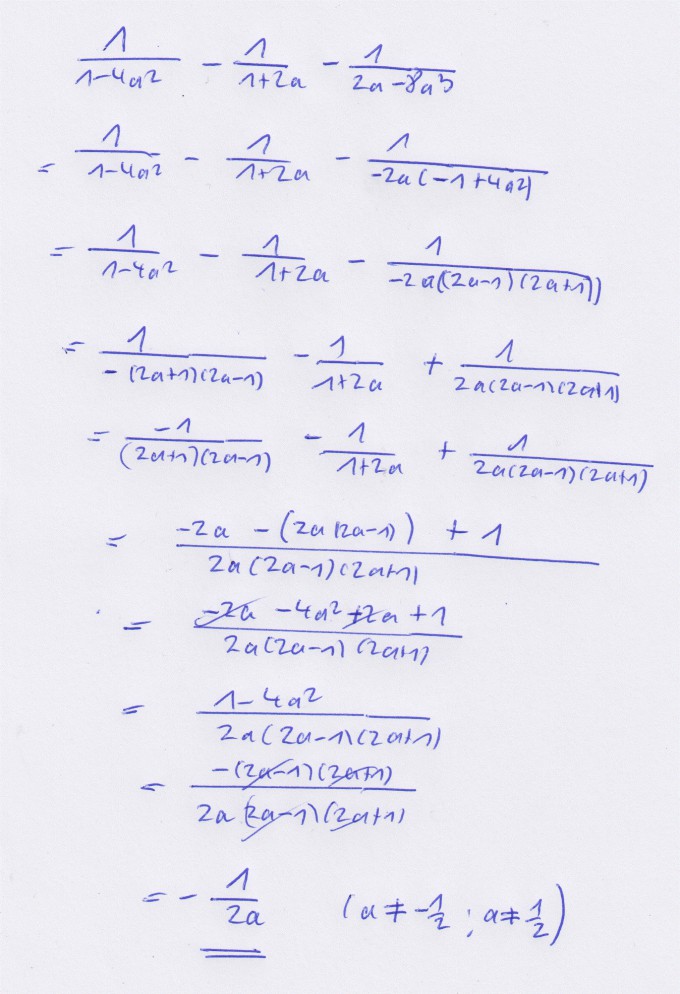 1/(1-4a²) - 1/(1+2a) - 1/(2a-8a³)
= 1/(1-4a²) - 1/(1+2a) - 1/(-2a(-1+4a²))
= 1/(1-4a²) - 1/(1+2a) - 1/(-2a((2a-1)(2a+1)))
= 1/(-(2a+1)(2a-1)) - 1/(1+2a) + 1/(2a(2a-1)(2a+1))
= -1/((2a+1)(2a-1)) - 1/(1+2a) + 1/(2a(2a-1)(2a+1))
= (-2a - (2a(2a-1)) + 1)/(2a(2a-1)(2a+1))
= (-2a - 4a² + 2a + 1)/(2a(2a-1)(2a+1))
= (1-4a²)/(2a(2a-1)(2a+1))
= (-(2a-1)(2a+1))/(2a(2a-1)(2a+1))
= - 1/(2a) (a ≠ -1/2 ; a ≠ 1/2)